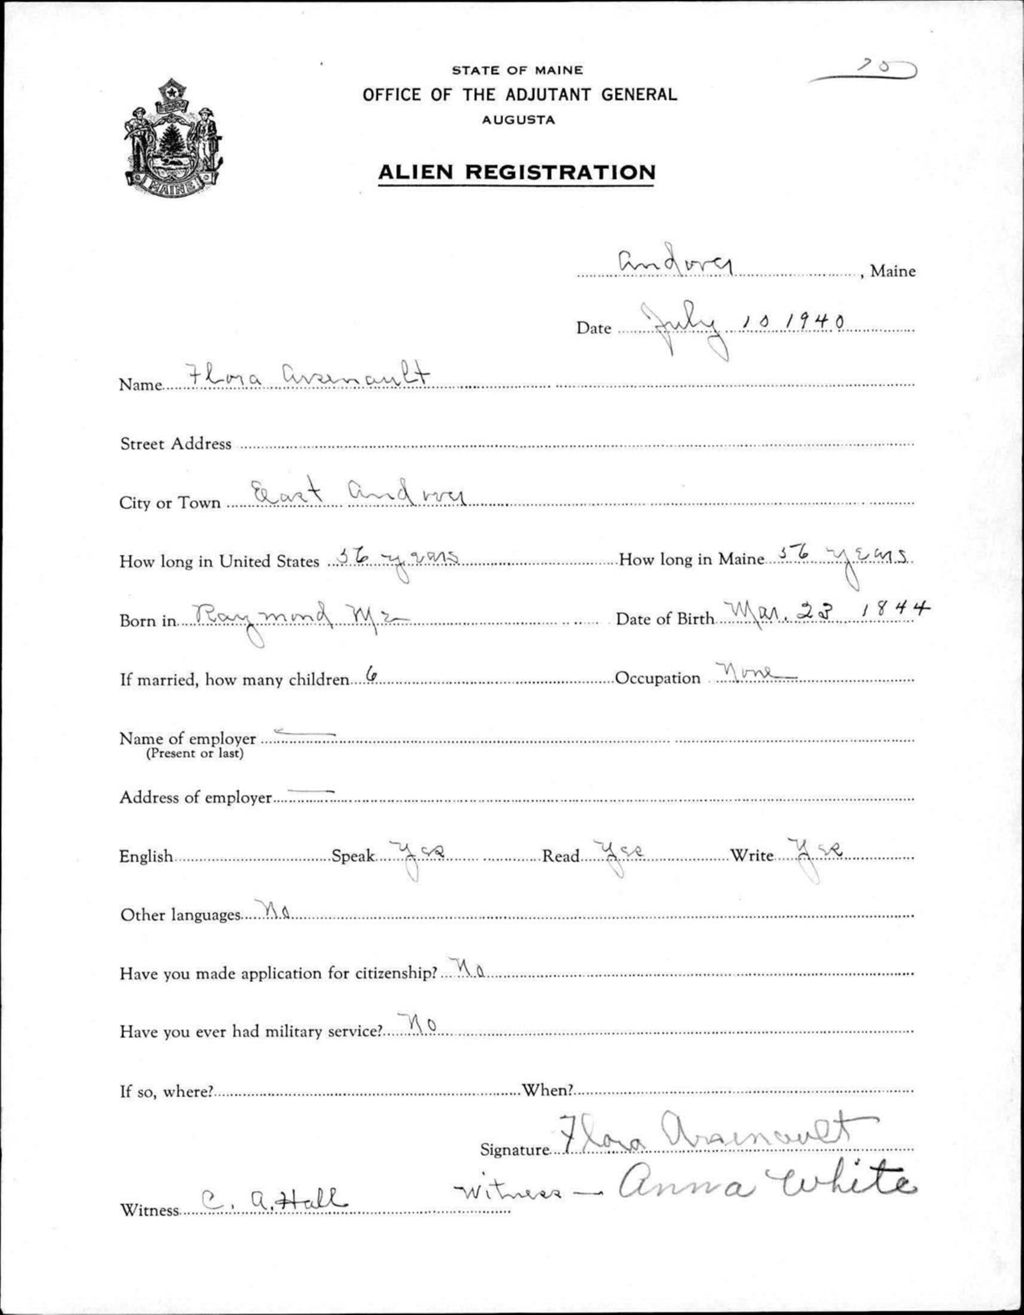 70
STATE OF MAINE
OFFICE OF THE ADJUTANT GENERAL
AUGUSTA
MAINE
ALIEN REGISTRATION
Andover, Maine
Date July 10 1940
Name Flora Arsenault
Street Address
City or Town East Andover
How long in United States 56 years How long in Maine 56 years
Born in Raymond Me Date of Birth Mar. 23 1844
If married, how many children 6 Occupation None
Name of employer —
(Present or last)
Address of employer —
English Speak Yes Read Yes Write Yes
Other languages No
Have you made application for citizenship? No
Have you ever had military service? No
If so, where? When?
Signature Flora Arsenault
Witness C. A. Hall Witness — Anna White